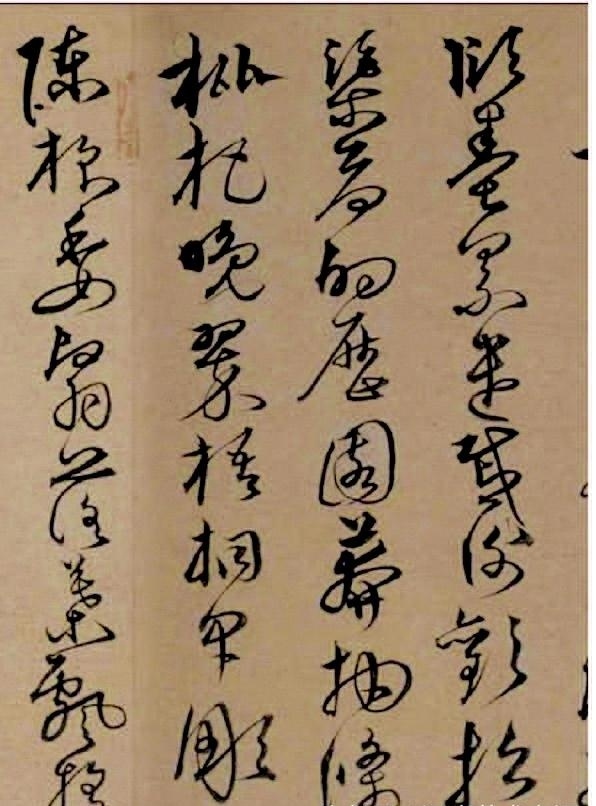 欣奏累遣慼謝歡招
渠荷的歷園莽抽條
枇杷晚翠梧桐早彫
陳根委翳落葉飄搖